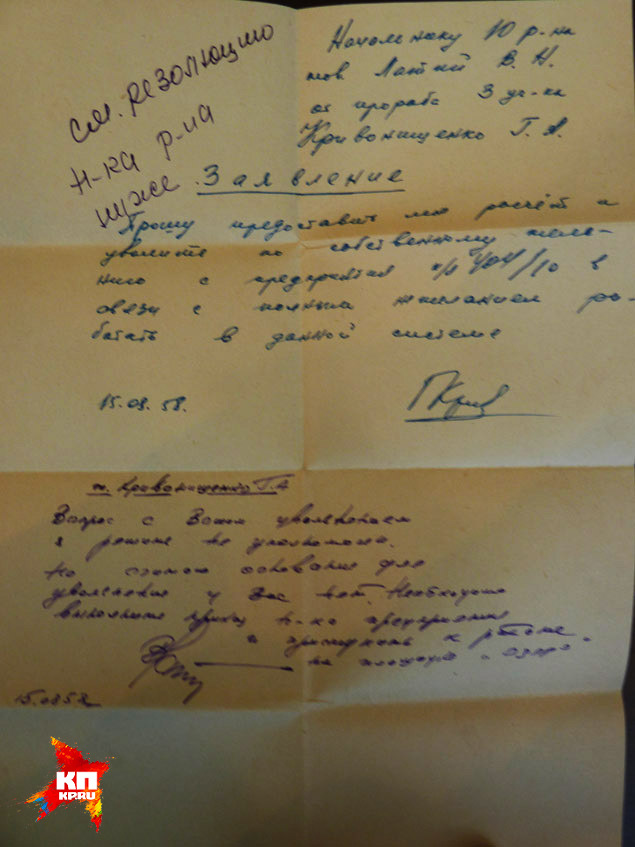 см. резолюцию
н-ка р-на
ниже.
Начальнику 10 р-на
тов. Латий В. Н.
от прораба 3 уч-ка
Кривонищенко Г. А.
Заявление
Прошу предоставить мне расчёт и
уволить по собственному жела-
нию с предприятия п/я 404/10 в
связи с полным желанием ра-
ботать в данной системе
15.08.58.
т. Кривонищенко Г.А
Вопрос с Вашим увольнением
я решить не уполномочен.
Но считаю основание для
увольнения у Вас нет. Необходимо
выполнить приказ н-ка предприятия
и приступить к работе
на площадке
15.08 58
КП
KP.RU